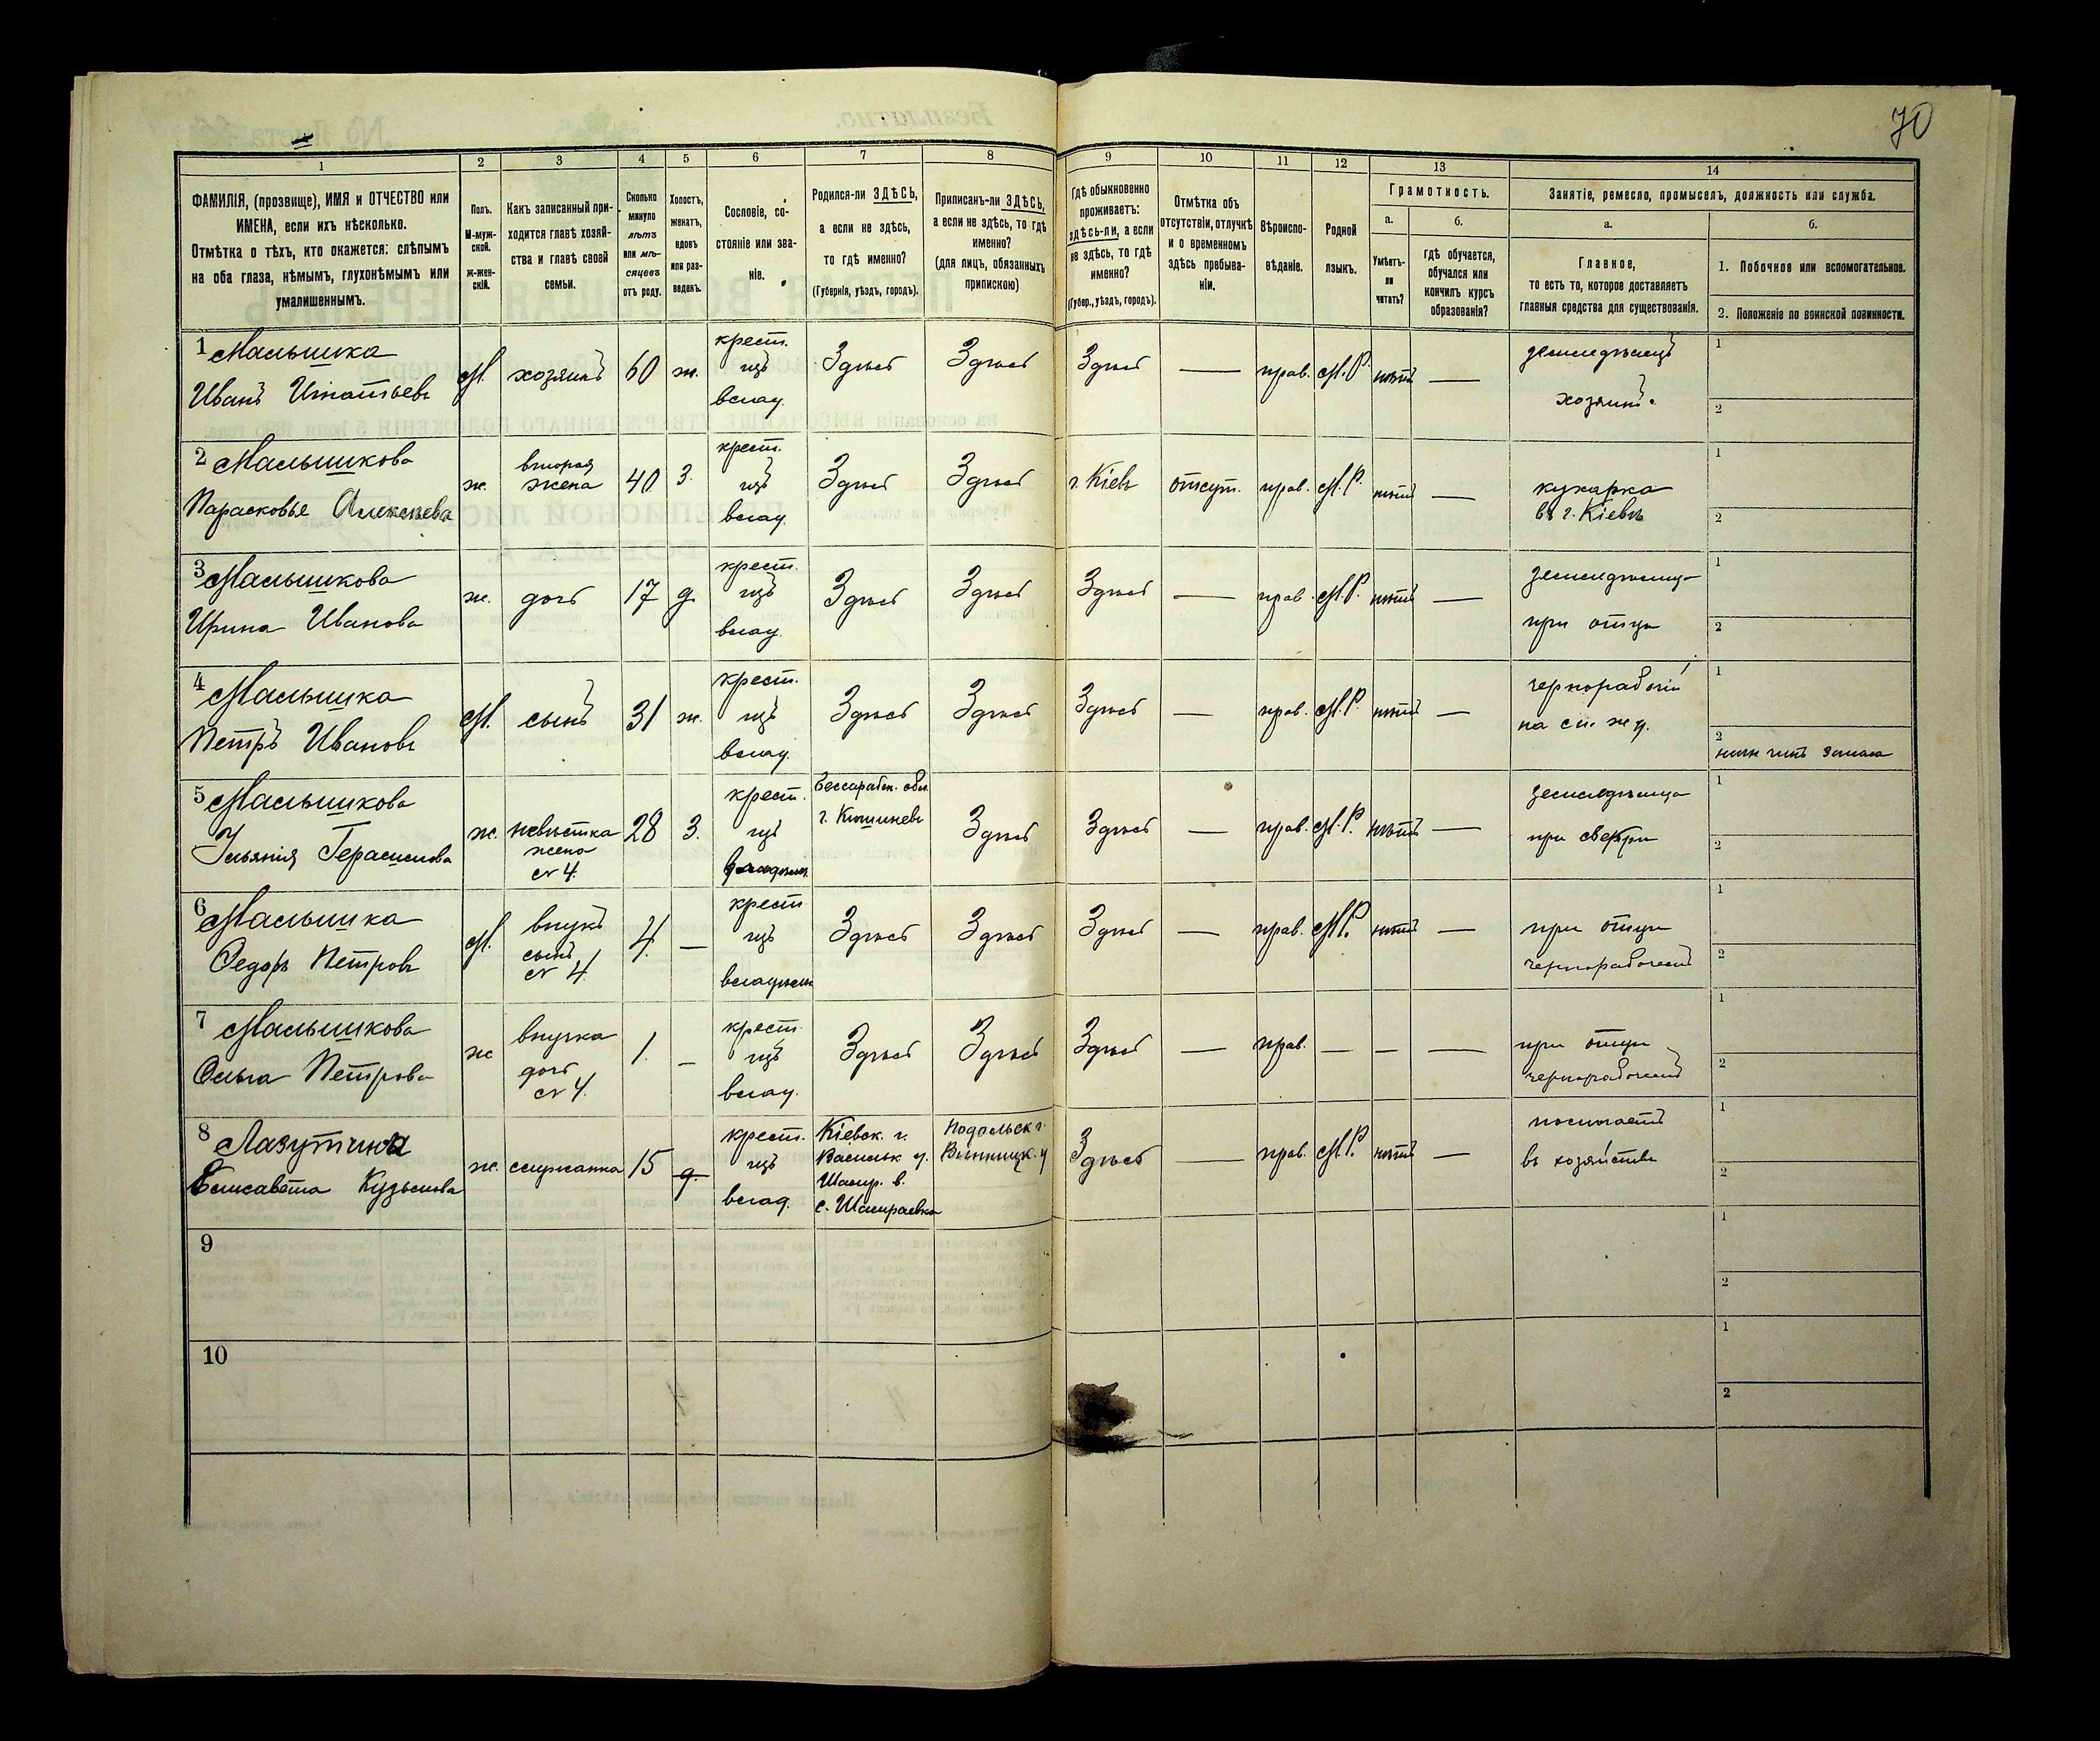 70
1 2 3 4 5 6 7 8 9 10 11 12 13 14
ФАМИЛІЯ, (прозвище), ИМЯ и ОТЧЕСТВО или
ИМЕНА, если ихъ нѣсколько.
Отмѣтка о тѣхъ, кто окажется: слѣпымъ
на оба глаза, нѣмымъ, глухонѣмымъ или
умалишеннымъ.
Полъ.
М-муж-
ской.
ж-жен-
скій.
Какъ записанный при-
ходится главѣ хозяй-
ства и главѣ своей
семьи.
Сколько
минуло
лѣтъ
или мѣ-
сяцевъ
отъ роду.
Холостъ,
женатъ,
вдовъ
или раз-
веденъ.
Сословіе, со-
стояніе или зва-
ніе.
Родился-ли ЗДѢСЬ,
а если не здѣсь,
то гдѣ именно?
(Губернія, уѣздъ, городъ).
Приписанъ-ли ЗДѢСЬ,
а если не здѣсь, то гдѣ
именно?
(для лицъ, обязанныхъ
припискою)
Гдѣ обыкновенно
проживаетъ:
здѣсь-ли, а если
не здѣсь, то гдѣ
именно?
(Губер., уѣздъ, городъ).
Отмѣтка объ
отсутствіи, отлучкѣ
и о временномъ
здѣсь пребыва-
ніи.
Вѣроиспо-
вѣданіе.
Родной
языкъ.
Грамотность.
а.
Умѣетъ-
ли
читать?
б.
гдѣ обучается,
обучался или
кончилъ курсъ
образованія?
Занятіе, ремесло, промыселъ, должность или служба.
а.
Главное,
то есть то, которое доставляетъ
главныя средства для существованія.
б.
1. Побочное или вспомогательное.
2. Положеніе по воинской повинности.
1 Малышка
Иванъ Игнатьевъ
М.
хозяинъ
60
ж.
крест.
изъ
влад.
Здѣсь
Здѣсь
Здѣсь
—
прав.
М.Р.
нѣтъ
—
земледѣлецъ
хозяинъ.
1
2
2 Малышкова
Парасковье Алексѣева
ж.
вторая
жена
40
З.
крест.
изъ
влад.
Здѣсь
Здѣсь
г. Кіевъ
отсут.
прав.
М.Р.
нѣтъ
—
кухарка
въ г. Кіевѣ
1
2
3 Малышкова
Ирина Иванова
ж.
дочь
17
д.
крест.
изъ
влад.
Здѣсь
Здѣсь
Здѣсь
—
прав.
М.Р.
нѣтъ
—
земледѣлица
при отцѣ
1
2
4 Малышка
Петръ Ивановъ
М.
сынъ
31
ж.
крест.
изъ
влад.
Здѣсь
Здѣсь
Здѣсь
—
прав.
М.Р.
нѣтъ
—
чернорабочій
на ст. ж д.
1
2
нижн чинъ запаса
5 Малышкова
Герасимова
ж.
невѣстка
жена
№ 4.
28
З.
крест.
изъ
Бессарабск. обл.
г. Кишиневъ
Здѣсь
Здѣсь
—
прав.
М.Р.
нѣтъ
—
земледѣлица
при свекрѣ
1
2
6 Малышка
Федоръ Петровъ
М.
внукъ
сынъ
№ 4.
4.
—
крест
изъ
Здѣсь
Здѣсь
Здѣсь
—
прав.
М.Р.
нѣтъ
—
при отцѣ
чернорабочемъ
1
2
7 Малышкова
Ольга Петрова
ж
внучка
дочь
№ 4.
1.
—
крест.
изъ
влад.
Здѣсь
Здѣсь
Здѣсь
—
прав.
—
—
—
при отцѣ
чернорабочемъ
1
2
8 Лазутина
Елисавета Кузьмова
ж.
служанка
15
д.
крест.
изъ
влад.
Кіевск. г.
Васильк у.
Шамр. в.
с. Шамраевка
Подольск г.
Винницк. у
Здѣсь
—
прав.
М.Р.
нѣтъ
—
помогаетъ
въ хозяйствѣ
1
2
9
1
2
10
1
2